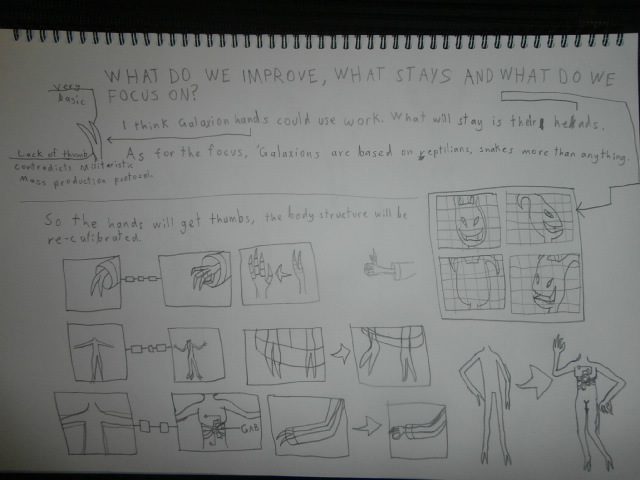 WHAT DO WE IMPROVE, WHAT STAYS AND WHAT DO WE
FOCUS ON?
very
basic
I think Galaxion hands could use work. What will stay is their heads.
Lack of thumb
contradicts Militaristic
Mass production protocol.
As for the focus, Galaxions are based on reptilians, snakes more than anything.
So the hands will get thumbs, the body structure will be
re-culibrated.
GAB